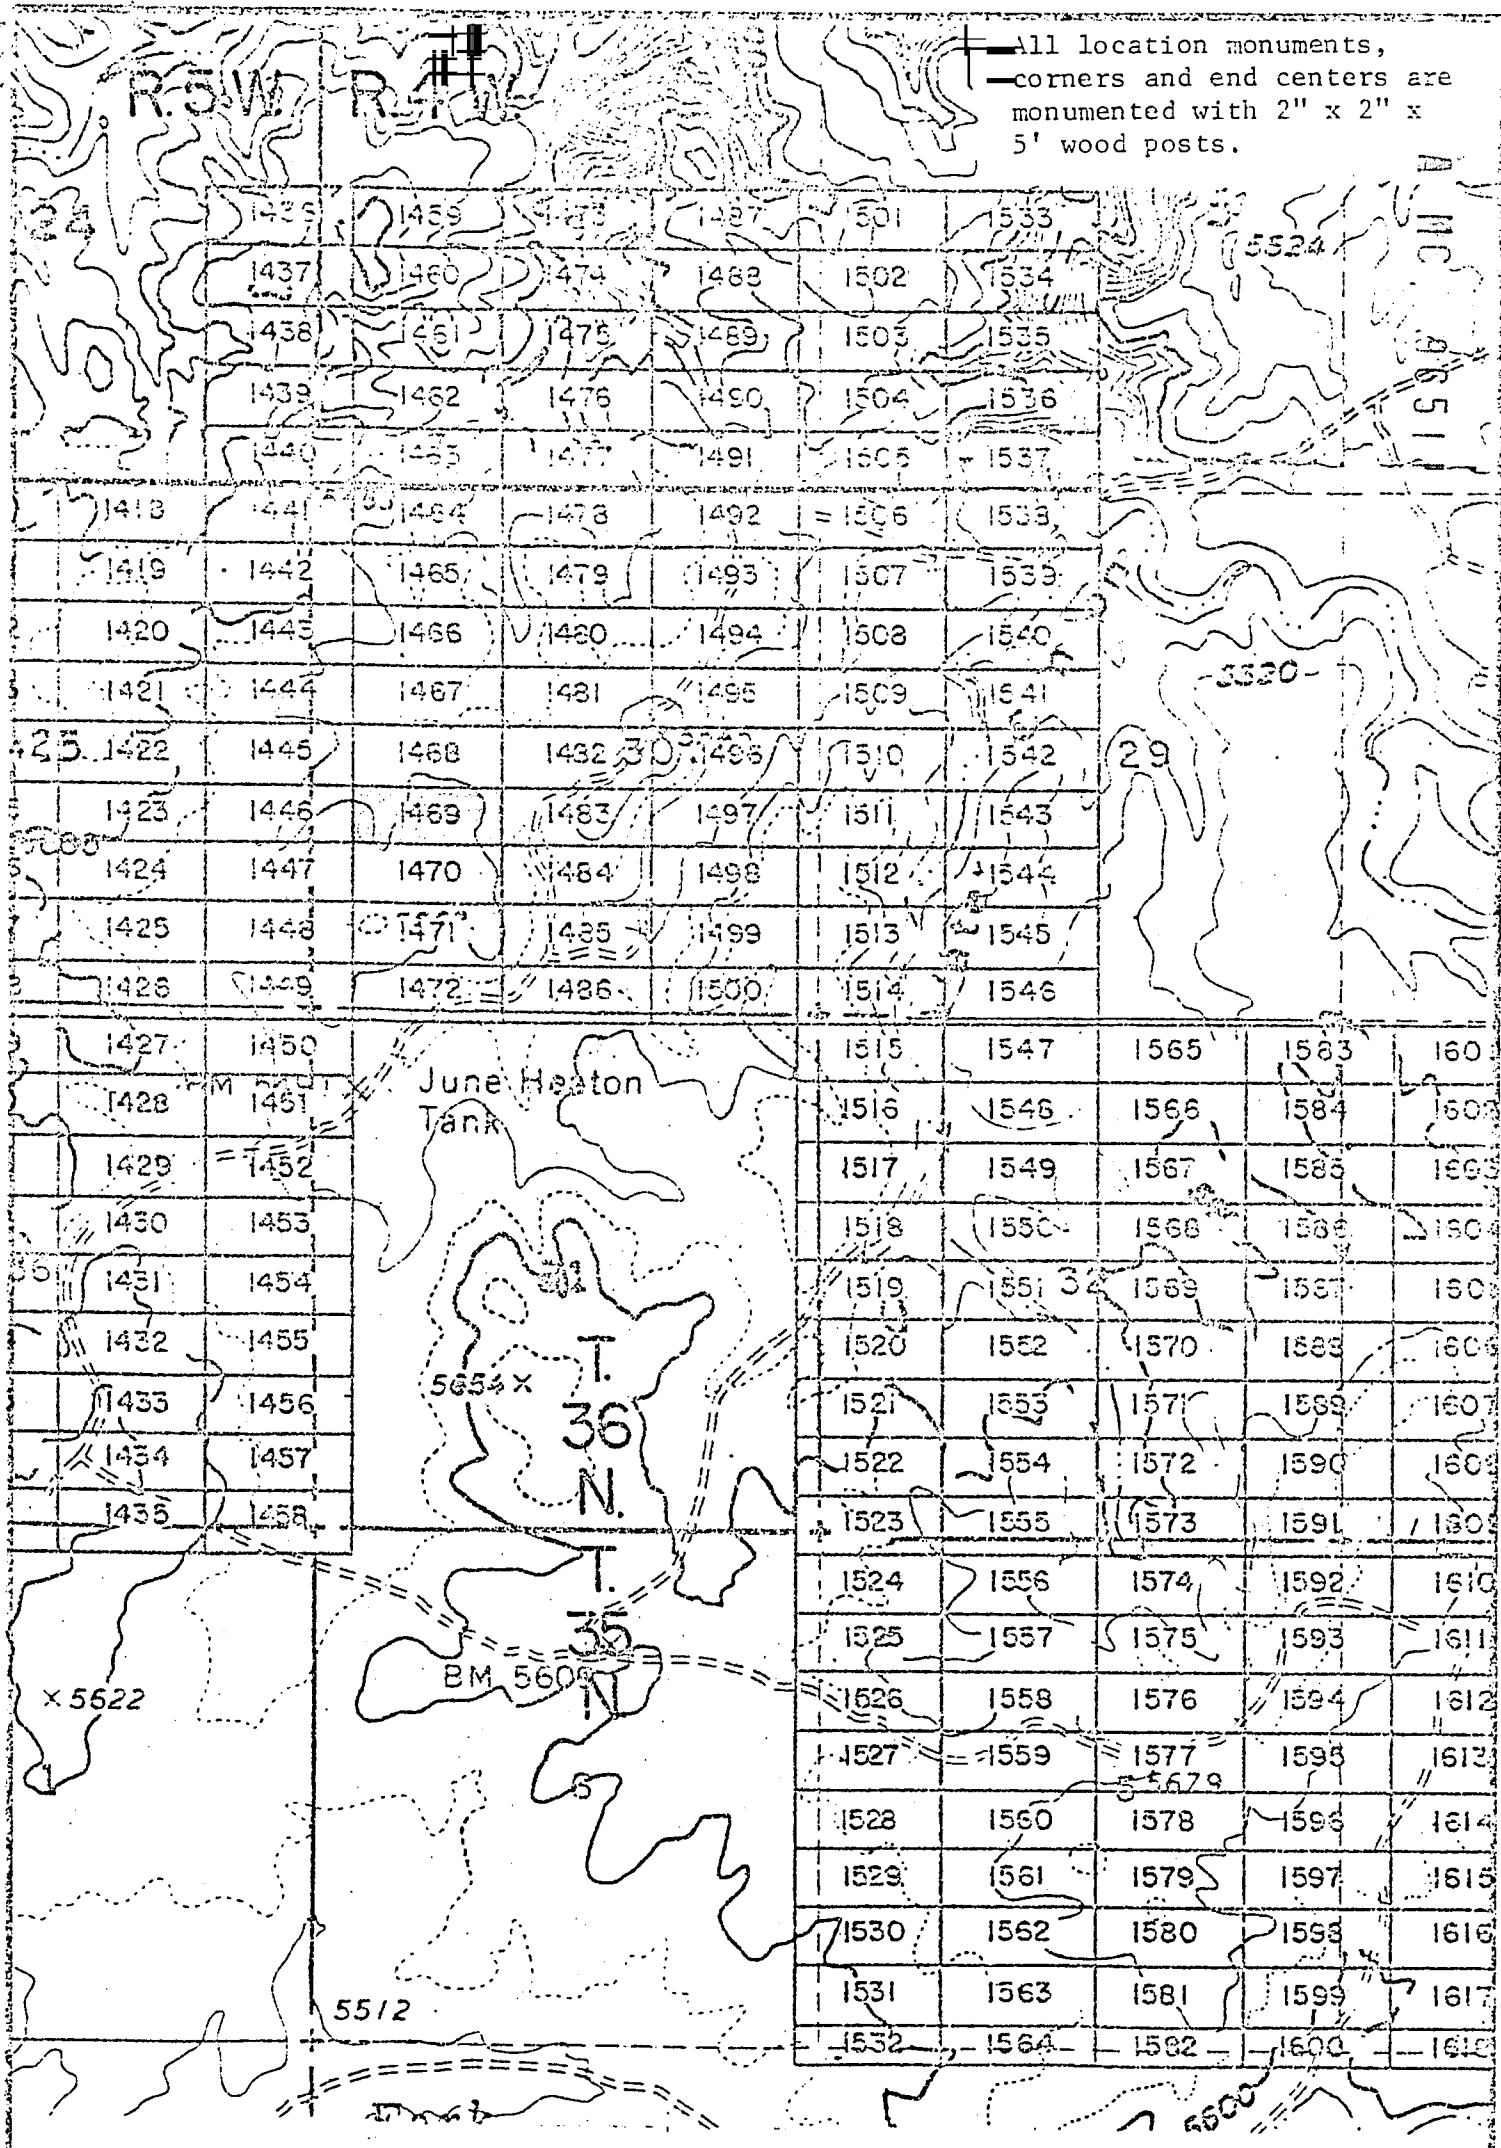 All location monuments,
corners and end centers are
monumented with 2" x 2" x
5' wood posts.
R.5W. R.4W.
24 1459 1487 1501 1533
5524
1437 1460 1474 1488 1502 1534
1438 1461 1475 1489 1503 1535
1439 1462 1476 1490 1504 1536
1440 1463 1477 1491 1505 1537
1418 1441 1464 1478 1492 1506 1538
1419 1442 1465 1479 1493 1507 1539
1420 1443 1466 1480 1494 1508 1540
1421 1444 1467 1481 1495 1509 1541
25 1422 1445 1468 1482 30 1496 1510 1542 29
1423 1446 1469 1483 1497 1511 1543
1424 1447 1470 1484 1498 1512 1544
1425 1448 1471 1485 1499 1513 1545
1426 1449 1472 1486 1500 1514 1546
1427 1450 1515 1547 1565 1583
June Heaton
Tank
1428 1451 1516 1548 1566 1584
1429 1452 1517 1549 1567 1585
1430 1453 1518 1550 1568 1586
1431 1454 1519 1551 32 1569 1587
1432 1455 T. 1520 1552 1570 1588
1433 1456 5654 36 1521 1553 1571 1589 1607
1434 1457 N. 1522 1554 1572 1590
1435 1458 1523 1555 1573 1591
T. 1524 1556 1574 1592 1610
35 1525 1557 1575 1593 1611
5622 BM N. 1526 1558 1576 1594 1612
1527 1559 1577 1595 1613
5 5679
1528 1560 1578 1596 1614
1529 1561 1579 1597 1615
1530 1562 1580 1598 1616
5512 1531 1563 1581 1599 1617
1532 1564 1582 1600 1618
5600